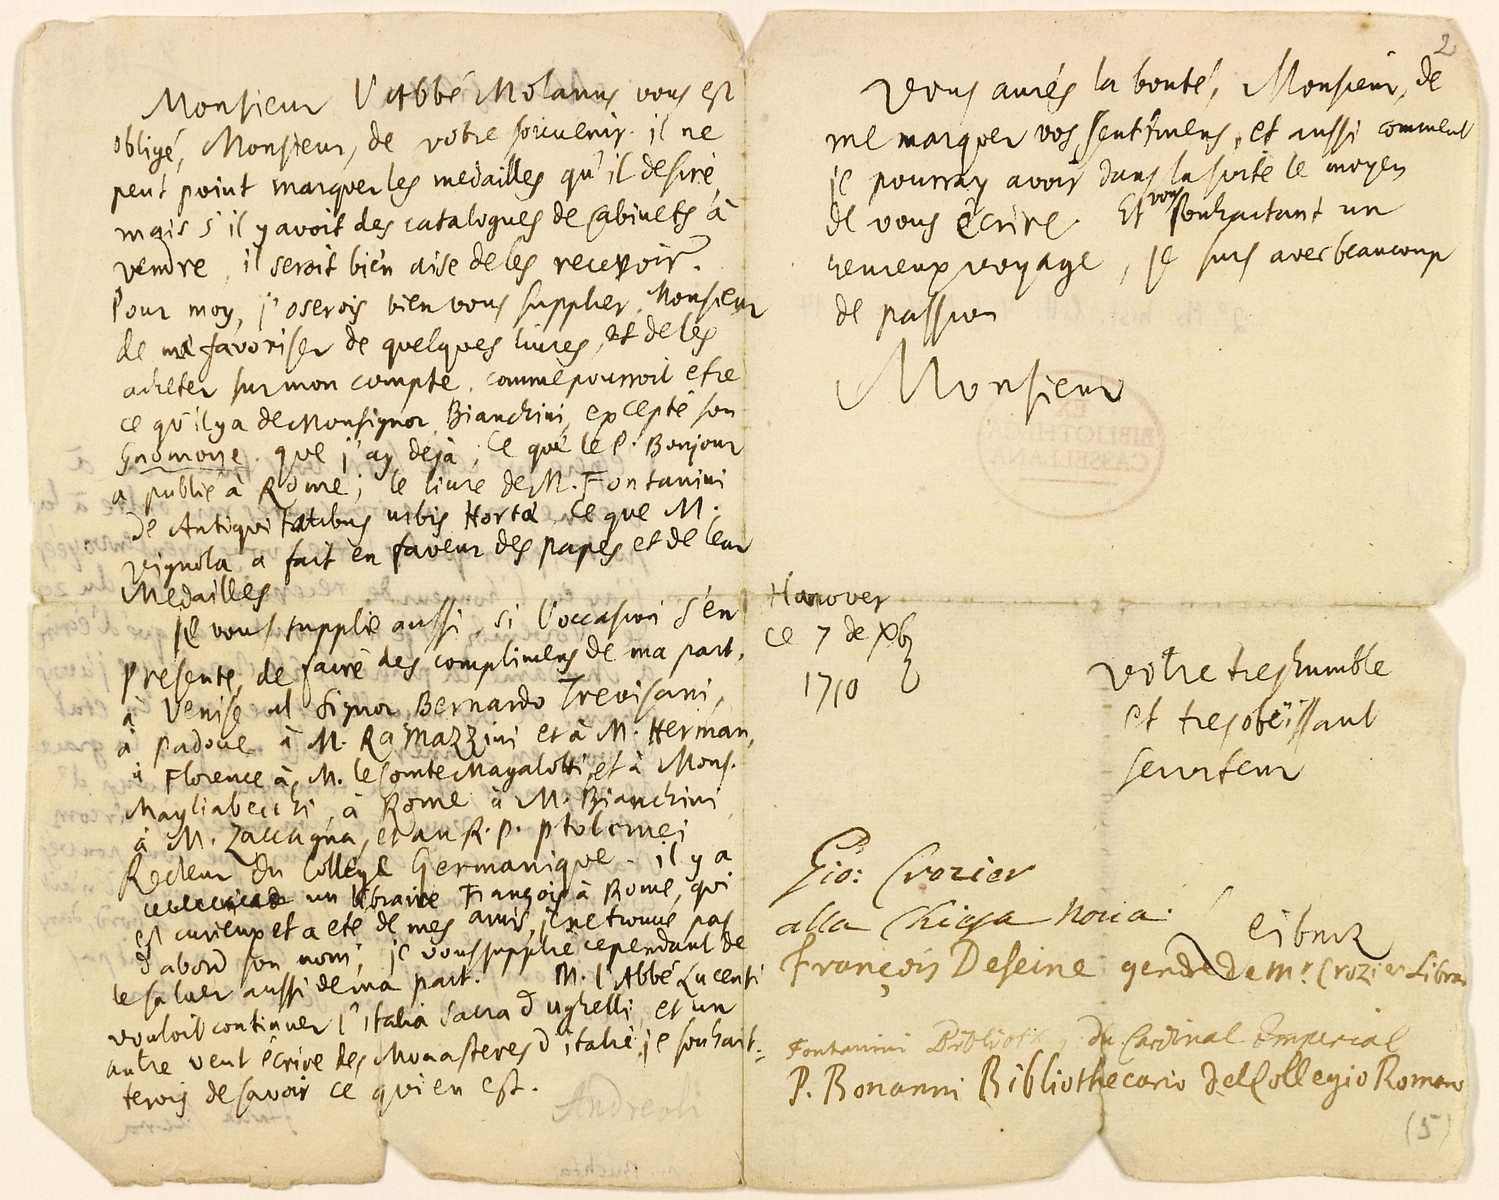 Monsieur l'Abbé Molanus vous est
obligé, Monsieur, de votre souvenir. il ne
peut point marquer les medailles qu'il desire,
mais s'il y avoit des catalogues de Cabinets à
vendre, il seroit bien aise de les recevoir.
Pour moy, j'oserois bien vous supplier, Monsieur
de me favoriser de quelques livres, et de les
acheter sur mon compte, comme pourroit etre
ce qu'il y a de Monsignor Bianchini, excepté son
Gnomone que j'ay dejà; Ce que le P. Bonjour
a publié à Rome; le livre de M. Fontanini
de Antiquitatibus urbis Hortae, Ce que M.
Vignola a fait en faveur des papes et de leur
Medailles
Je vous supplie aussi, si l'occasion s'en
presente, de faire des complimens de ma part,
à Venise al Signor Bernardo Trevisani,
à Padoue à M. Ramazzini et à M. Herman,
à Florence à M. le Comte Magalotti, et à Mons.
Magliabecchi, à Rome à M. Bianchini,
à M. Zaccagna, et au R. P. Ptolemei
Recteur du College Germanique. il y a
un libraire François à Rome, qui
est curieux et a eté de mes amis, je ne trouve pas
d'abord son nom; je vous supplie cependant de
le saluer aussi de ma part. M. l'Abbé Lucenti
vouloit continuer l'Italia Sacra d'Ughelli, et un
autre veut écrire des Monasteres d'italie, je souhait-
terois de savoir ce qui en est.
Andreoli
2
Vous aurés la bonté, Monsieur, de
me marquer vos sentimens, et aussi comment
je pourray avoir dans la suite le moyen
de vous écrire. Et vous souhaitant un
heureux voyage, je suis avec beaucoup
de passion
Monsieur
EX
BIBLIOTHECA
CASSELLANA
Hanover
ce 7 de Xbr
1710
votre treshumble
et tresobeissant
serviteur
Leibniz
Gio: Crozier
alla Chiesa nova.
François Deseine gendre de mr. Crozier Librai
Fontanini Biblioth. du Cardinal Imperial
P. Bonanni Bibliothecario del Collegio Romano
(5)